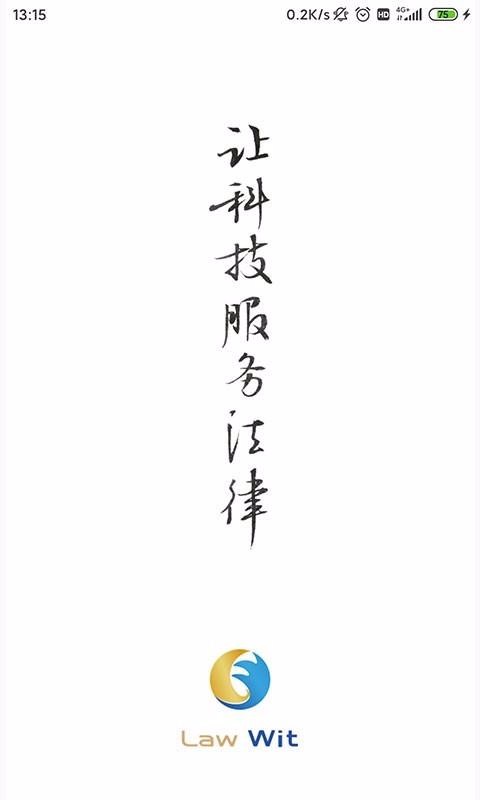 13:15 0.2K/s HD 4G+ 75
让科技服务法律
Law Wit